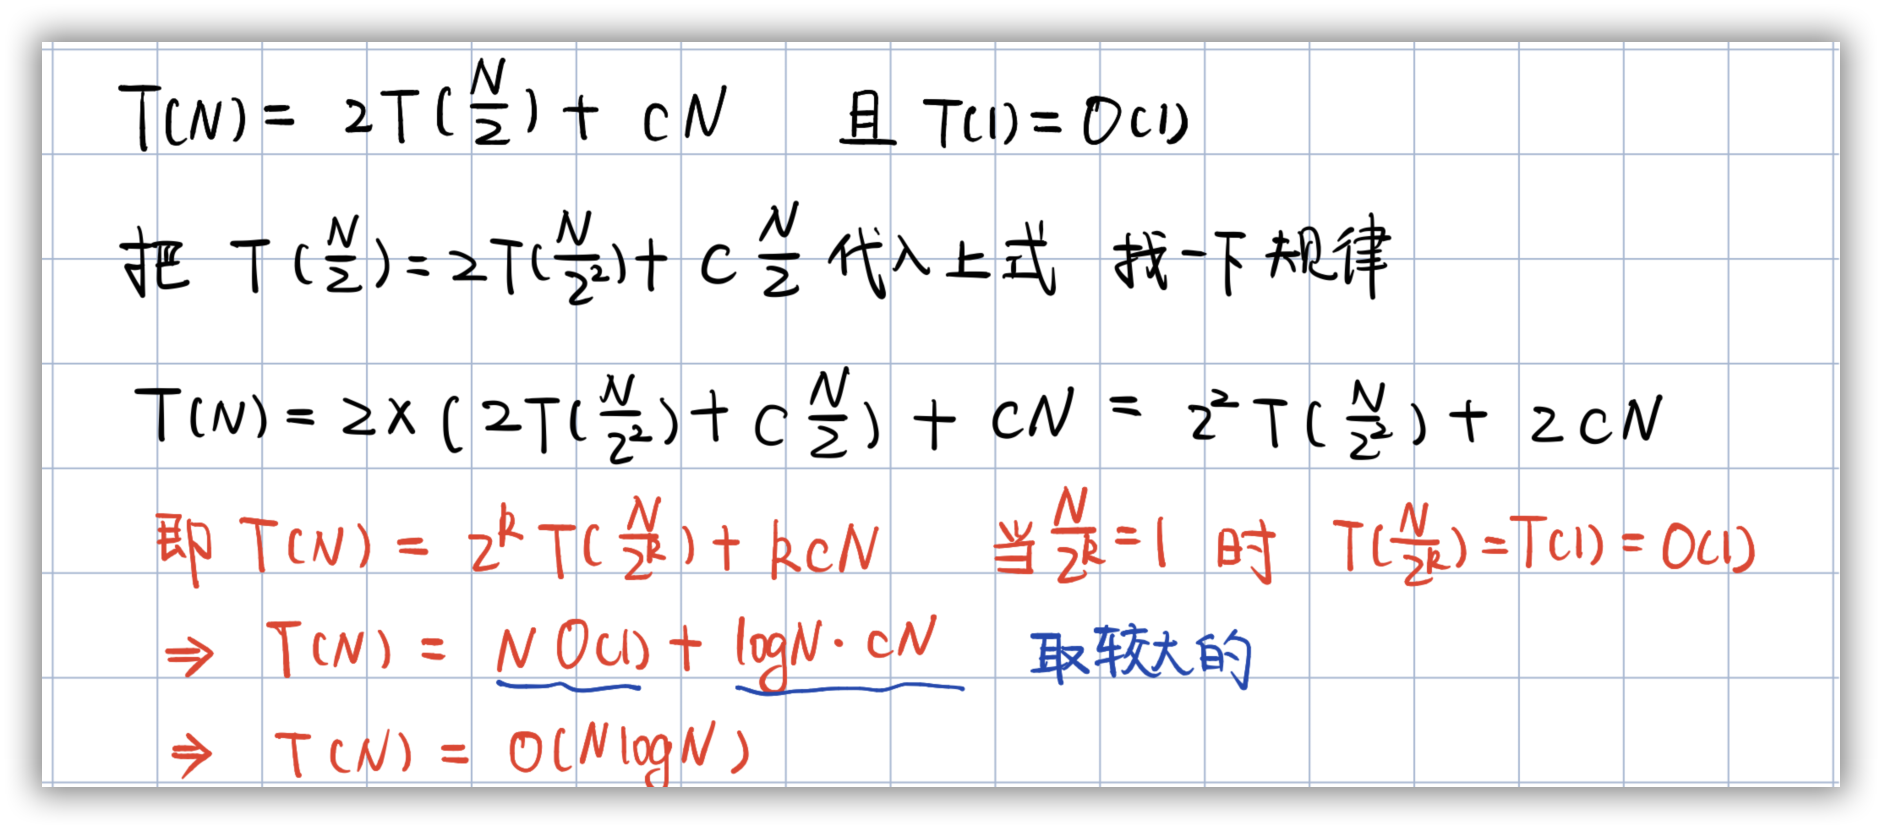 T(N) = 2T(N/2) + cN 且 T(1) = O(1)
把 T(N/2) = 2T(N/2²) + c N/2 代入上式 找一下规律
T(N) = 2×(2T(N/2²) + c N/2) + cN = 2²T(N/2²) + 2cN
即 T(N) = 2ᵏT(N/2ᵏ) + kcN 当 N/2ᵏ = 1 时 T(N/2ᵏ) = T(1) = O(1)
⇒ T(N) = N O(1) + logN · cN 取较大的
⇒ T(N) = O(NlogN)